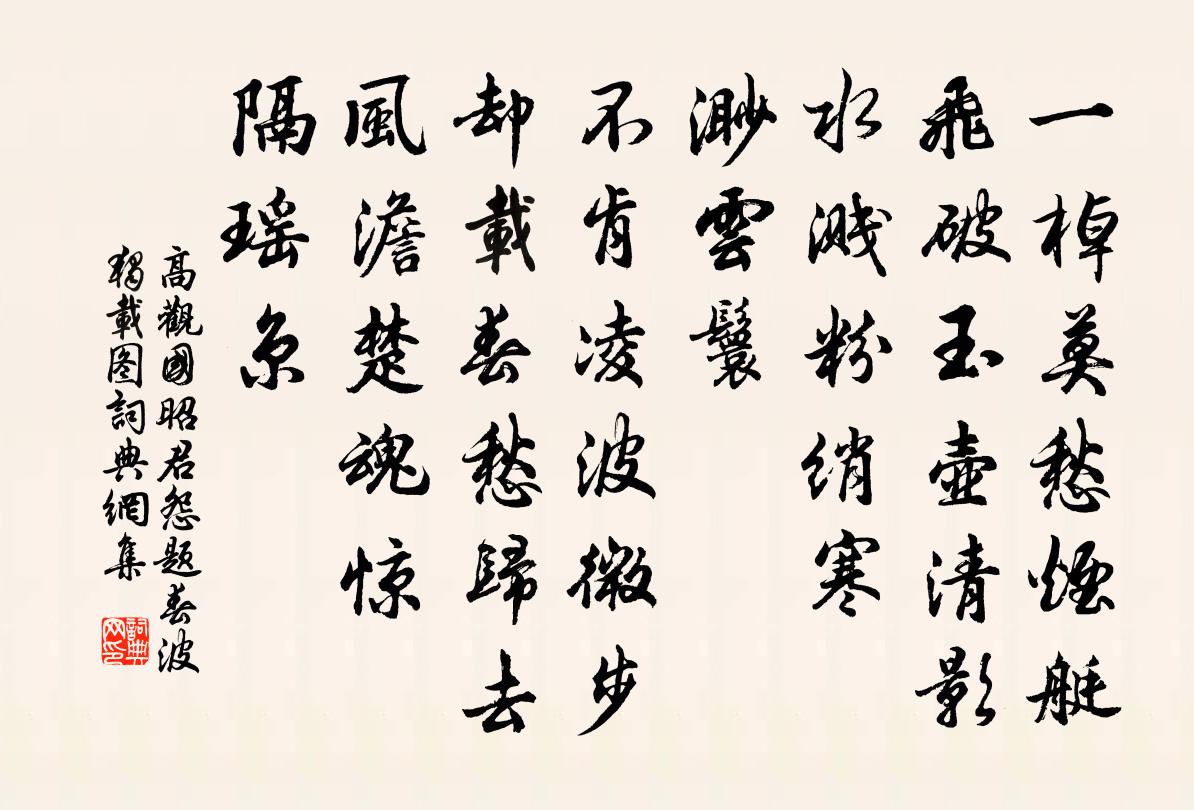 一棹莫愁煙艇
飛破玉壺清影
水濺粉綃寒
渺雲鬟
不肯凌波微步
却載春愁歸去
風澹楚魂惊
隔瑶京
高觀國昭君怨题春波
獨載图詞典網集
詞典网印